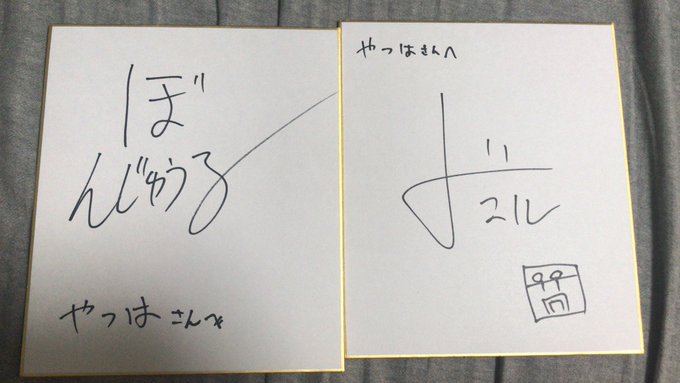 ぼ
んじゅうる
やつはさんへ
やつはさんへ
ドズル